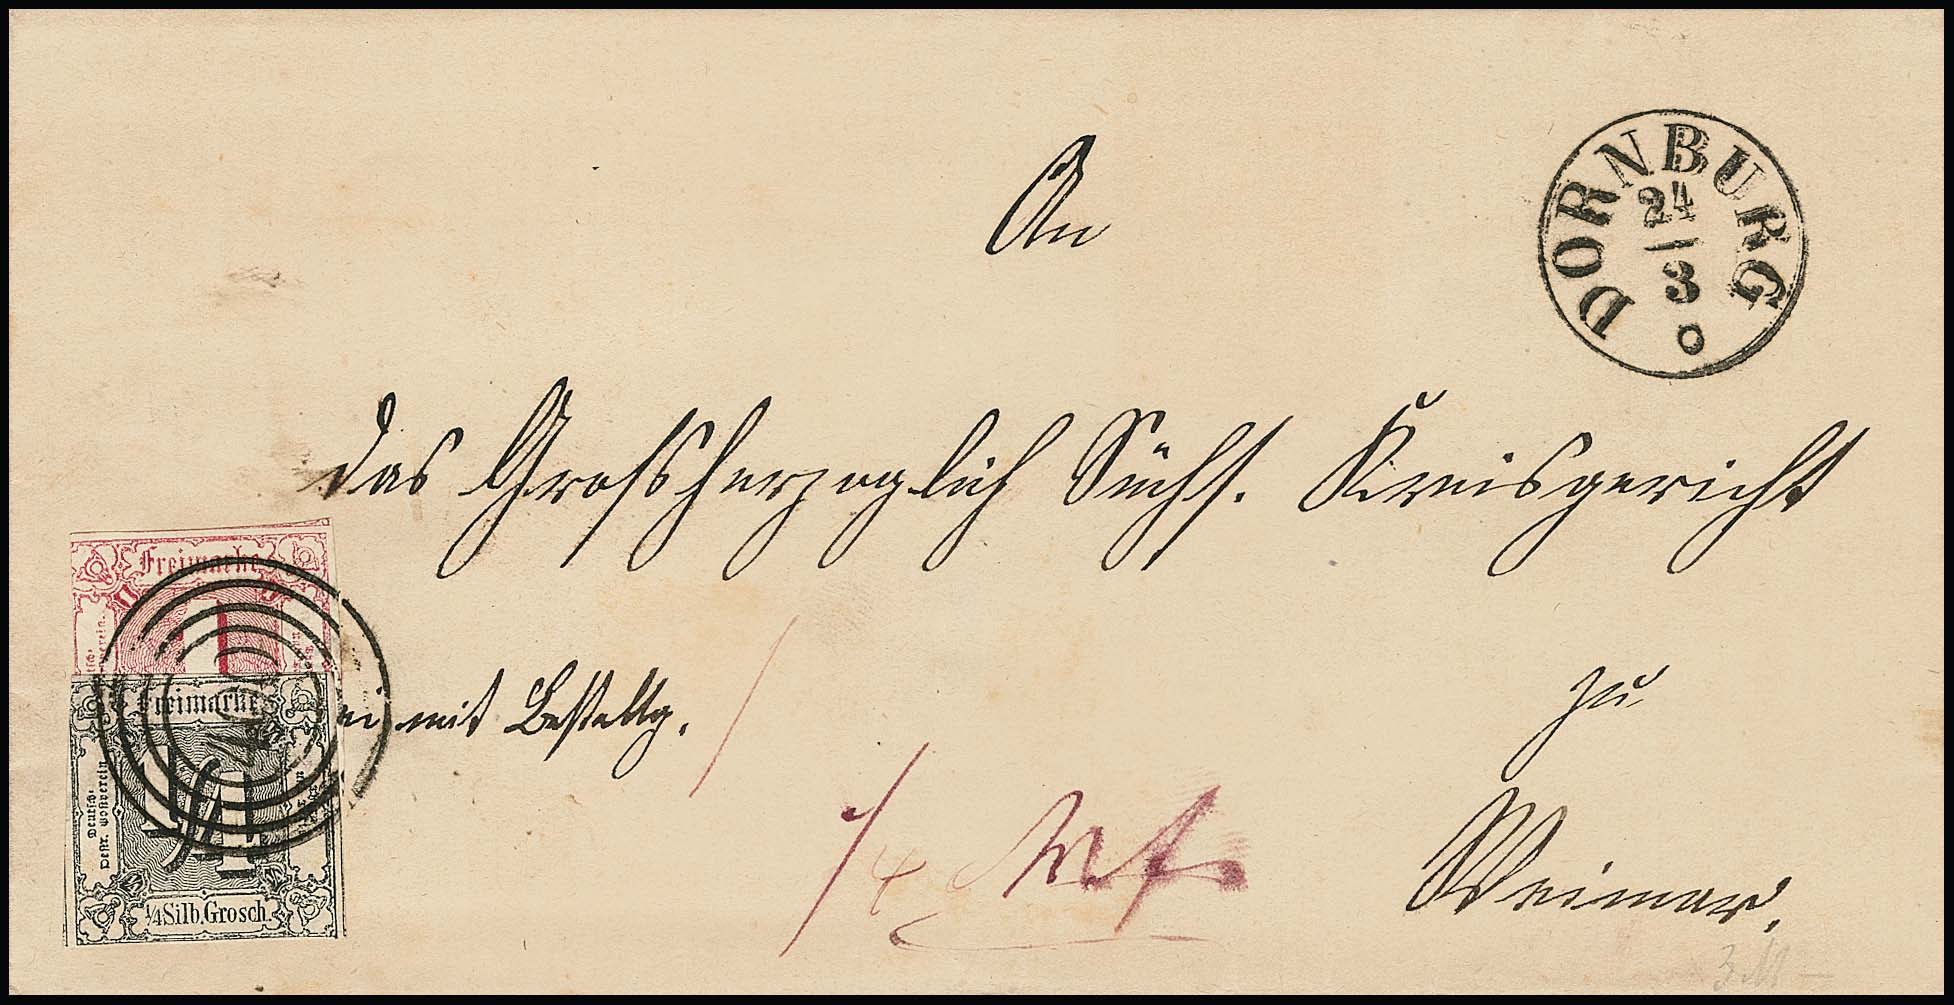 An
DORNBURG
24
3
das Grossherzoglich Sächs. Kreisgericht
Freimarke
1
mit Bestellg.
zu
Weimar.
Freimarke
Deutsch-
Oestr. Postverein
1/4
1/4 Silb. Grosch.